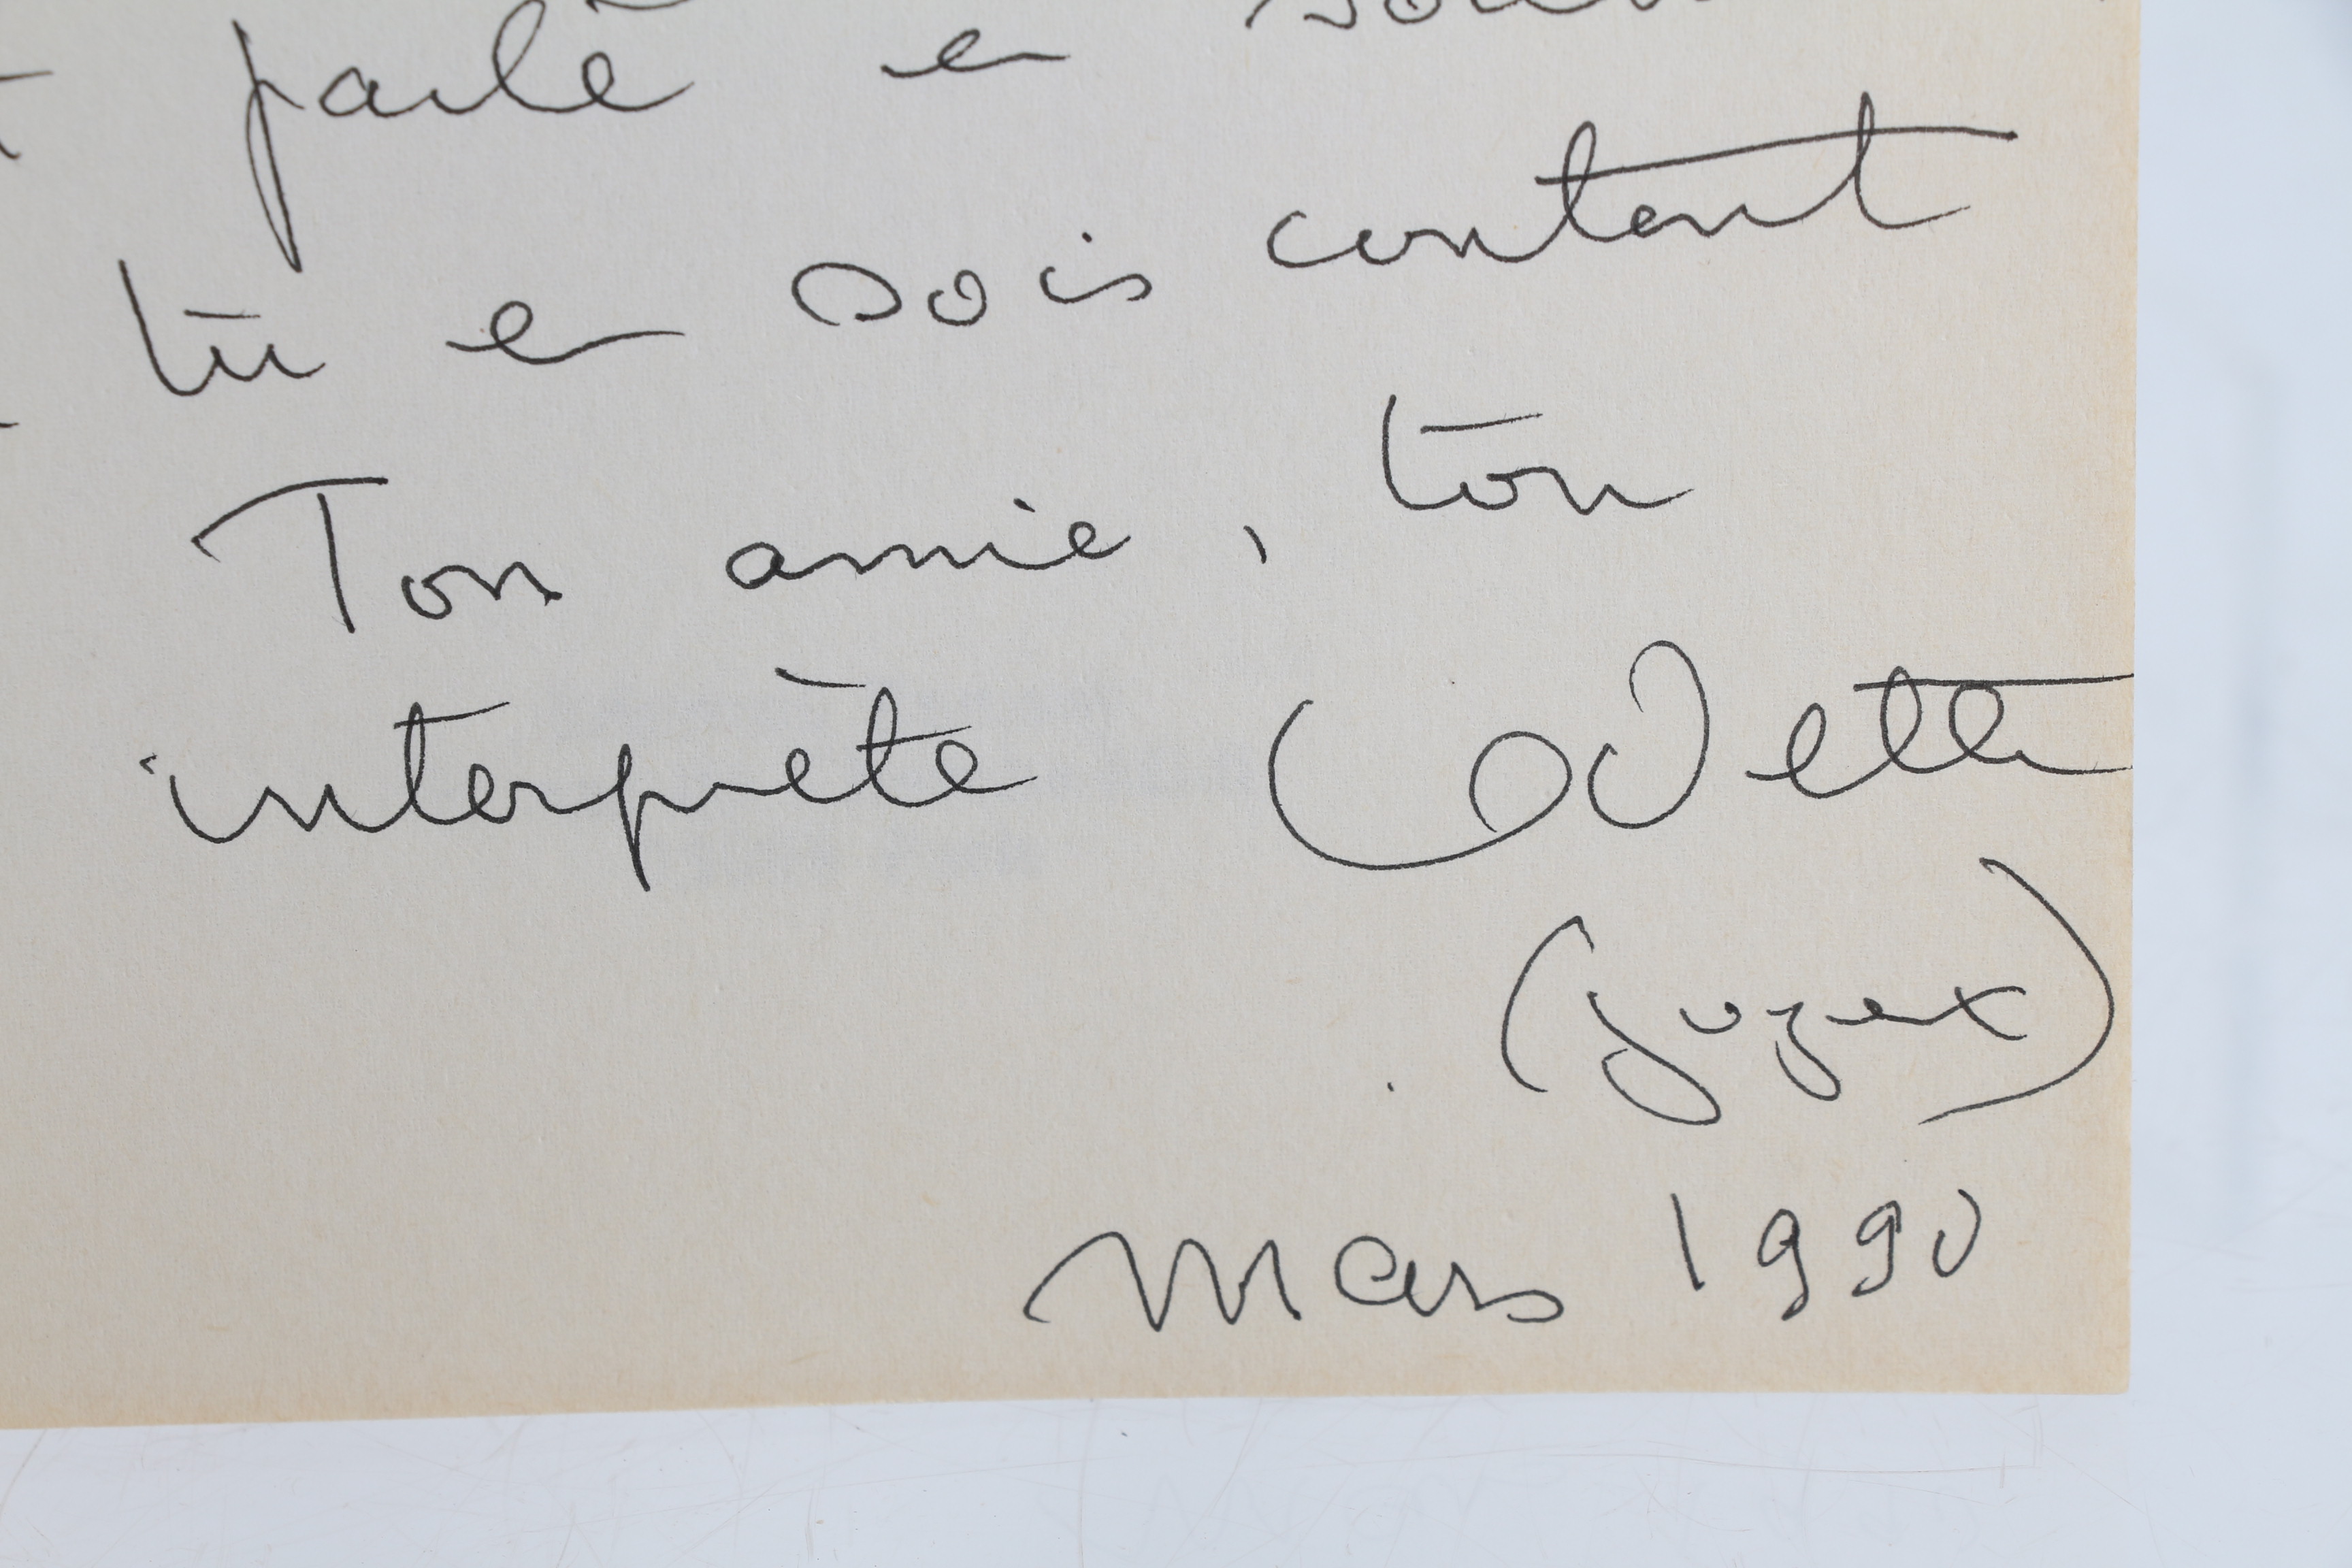 parlé en
tu en sois content
Ton amie, ton
interprète Odette
(Joyeux)
Mars 1990